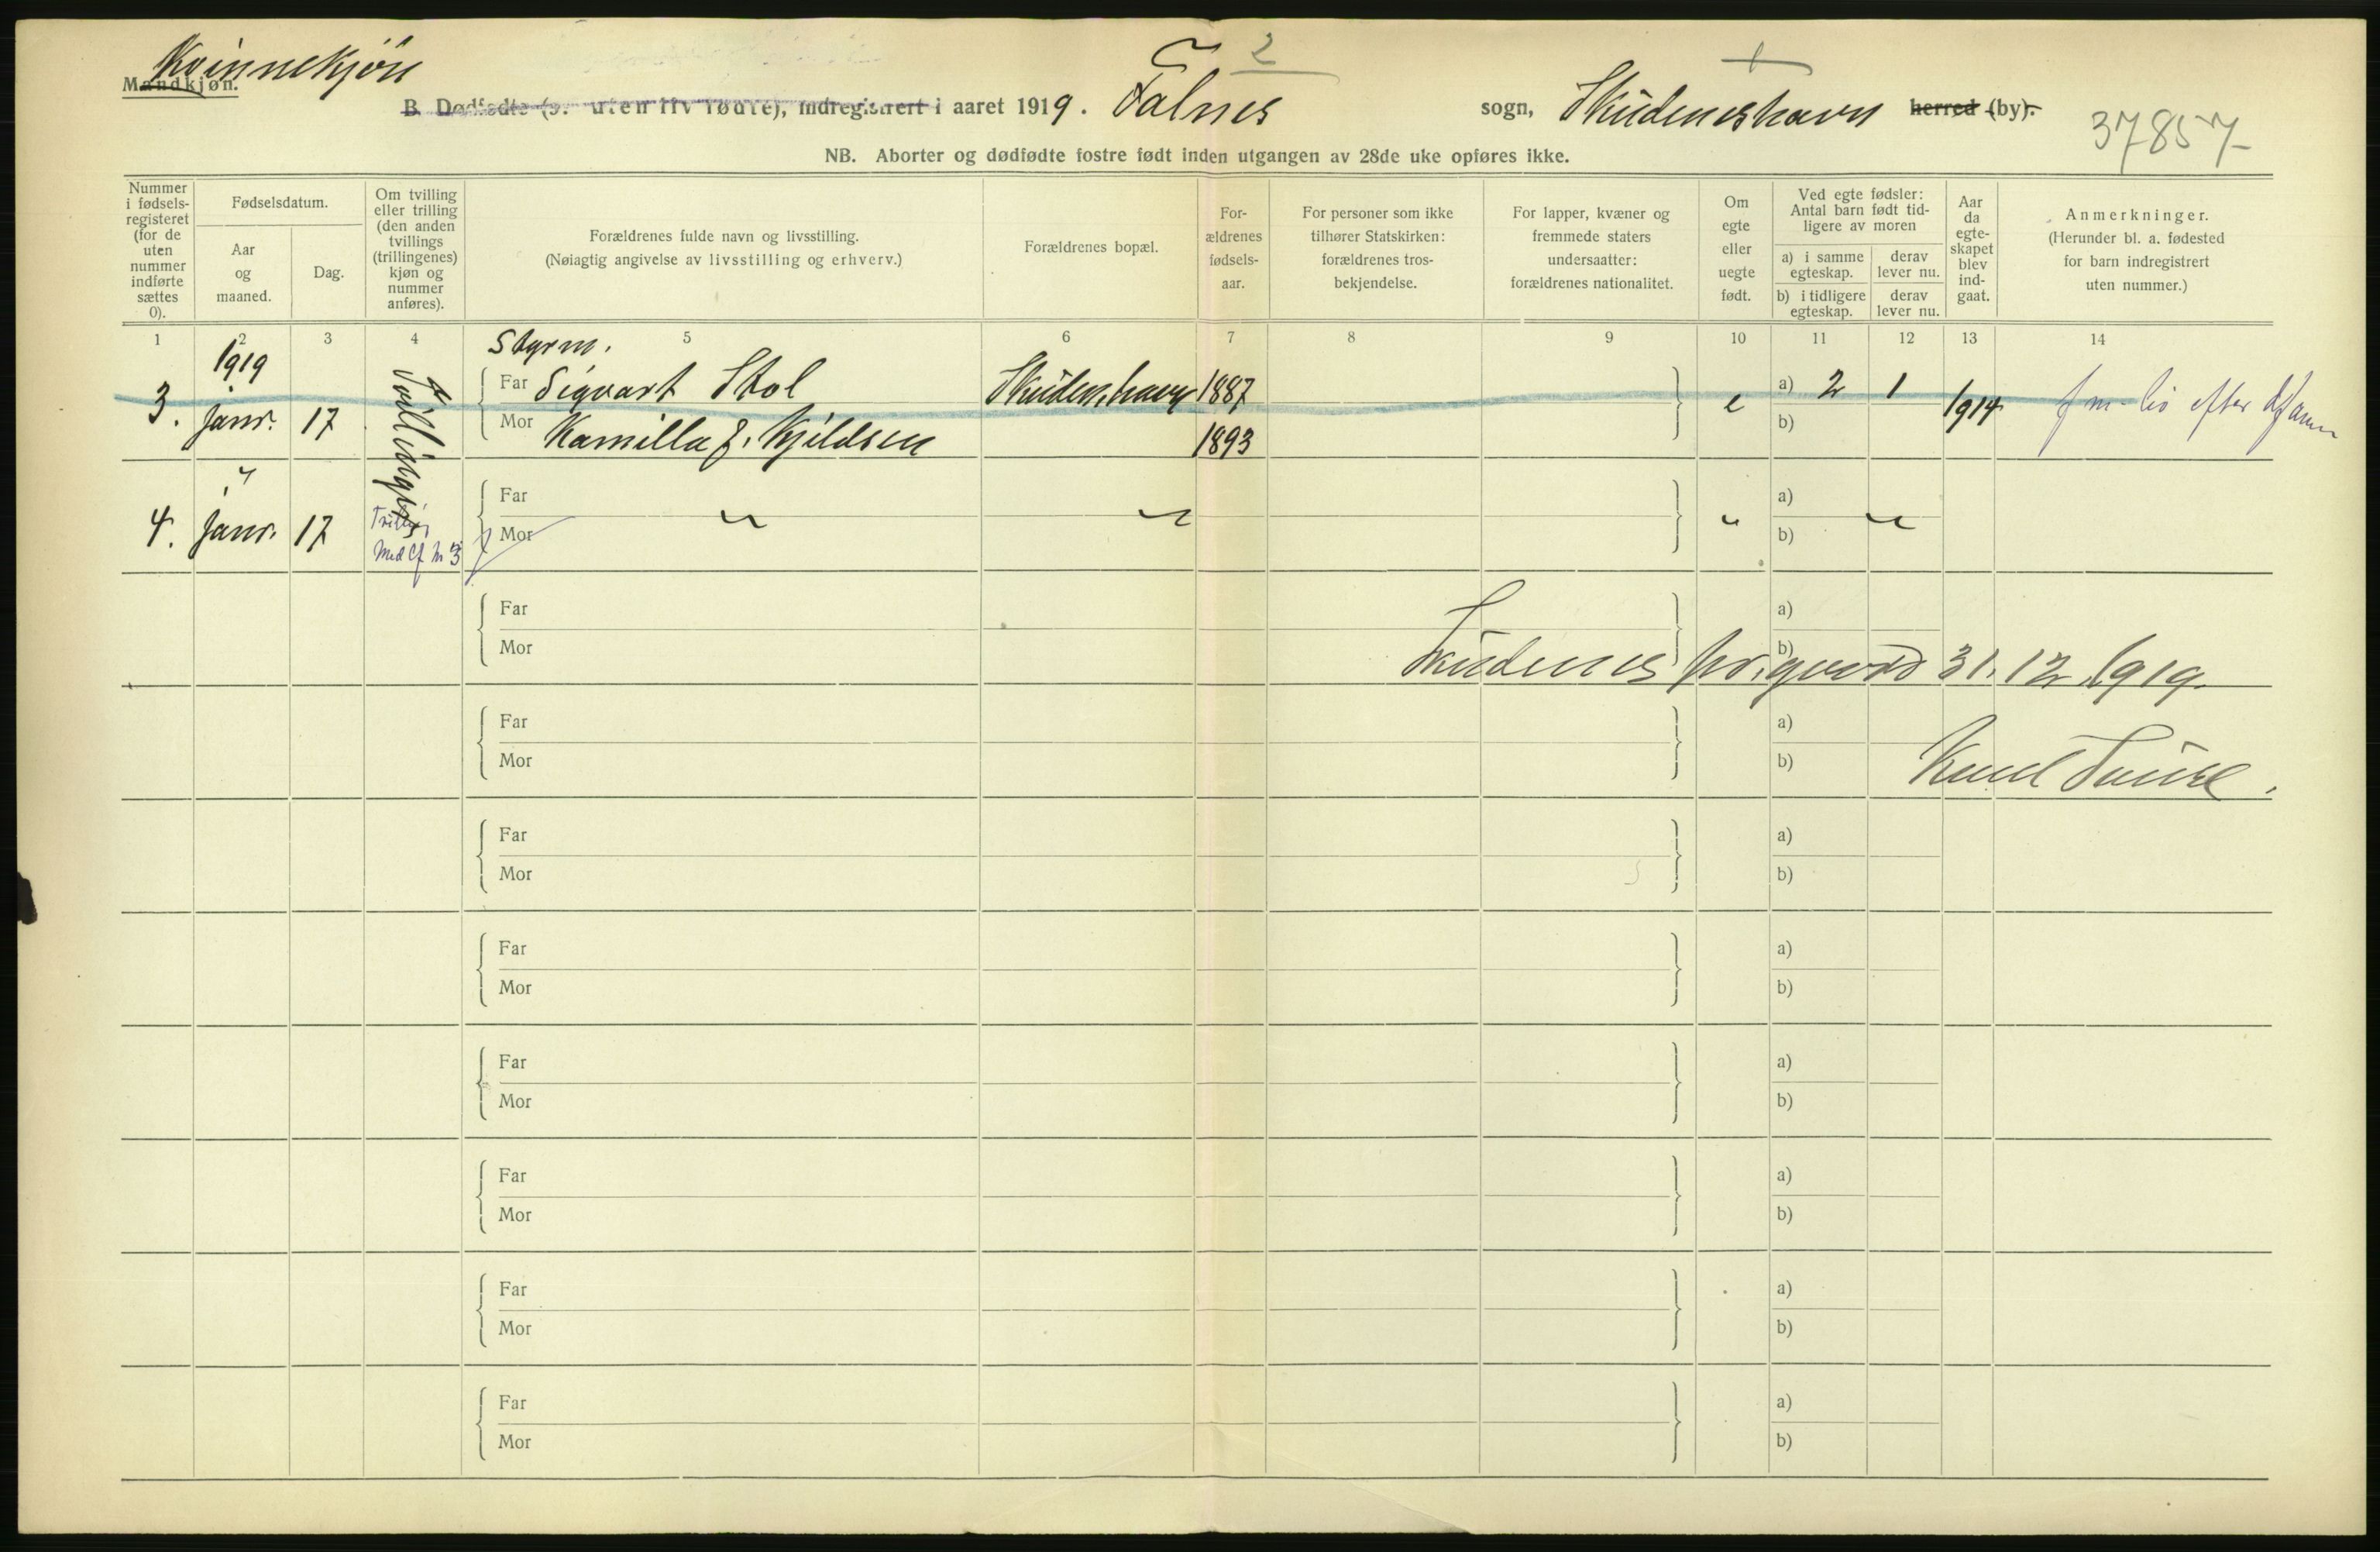 Kvinnekjön
Mandkjøn.
2
B. Dødfødte (ɔ: uten liv fødte), indregistrert i aaret 1919. Falnes sogn, Skudeneshavn herred (by).
37857
NB. Aborter og dødfødte fostre født inden utgangen av 28de uke opføres ikke.
Nummer i fødsels-registeret (for de uten nummer indførte sættes 0).
Fødselsdatum.
Aar og maaned.
Dag.
Om tvilling eller trilling (den anden tvillings (trillingenes) kjøn og nummer anføres).
Forældrenes fulde navn og livsstilling.
(Nøiagtig angivelse av livsstilling og erhverv.)
Forældrenes bopæl.
For-ældrenes fødsels-aar.
For personer som ikke tilhører Statskirken: forældrenes tros-bekjendelse.
For lapper, kvæner og fremmede staters undersaatter: forældrenes nationalitet.
Om egte eller uegte født.
Ved egte fødsler: Antal barn født tid-ligere av moren
a) i samme egteskap.
derav lever nu.
b) i tidligere egteskap.
derav lever nu.
Aar da egte-skapet blev ind-gaat.
Anmerkninger.
(Herunder bl. a. fødested for barn indregistrert uten nummer.)
1 2 3 4 5 6 7 8 9 10 11 12 13 14
1919 Styrm.
3. janr. 17 Tvillinger Far Sigvart Stol Skudeneshavn 1887 e a) 2 1 1914
Mor Kamilla J. Kjildsen 1893 b)
4. " janr. 17 Far " " " a) "
Mor b)
Med nr 3
Far a)
Mor b)
Skudenes pr.gaard 31.12.1919.
Far a)
Mor b)
Far a)
Mor b)
Far a)
Mor b)
Far a)
Mor b)
Far a)
Mor b)
Far a)
Mor b)
Far a)
Mor b)